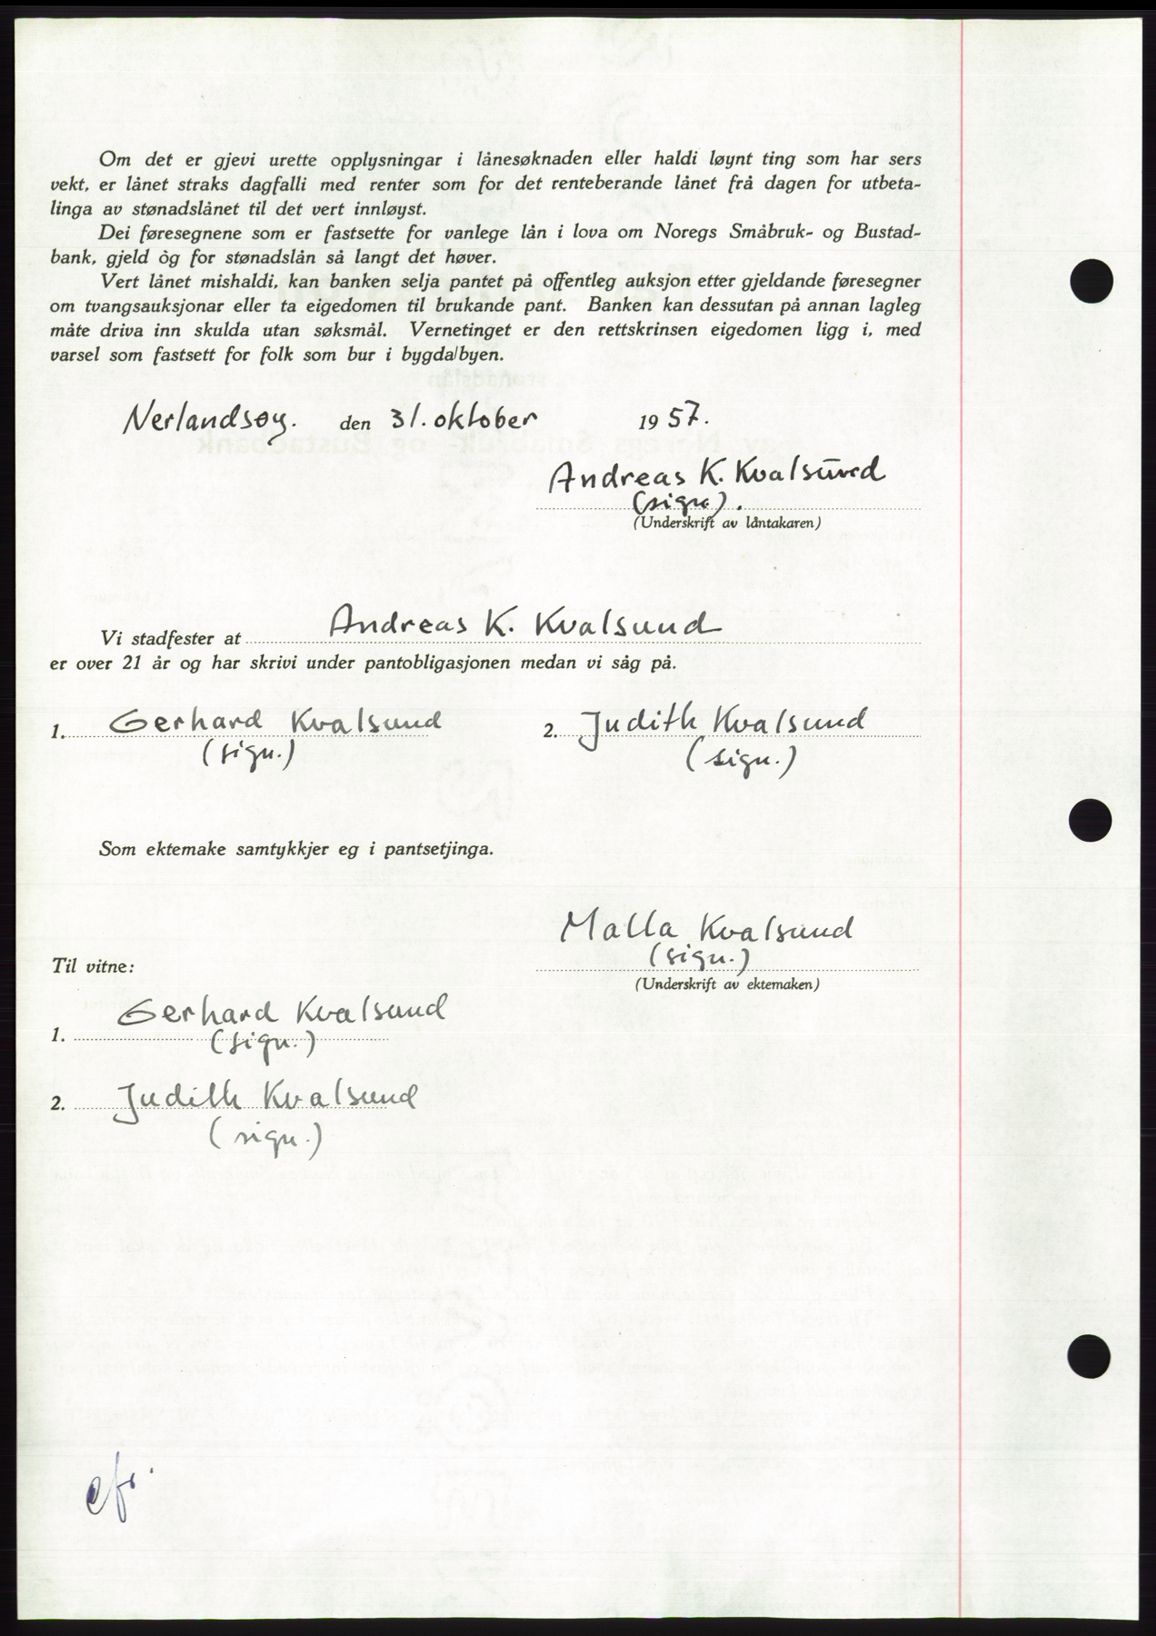 Om det er gjevi urette opplysningar i lånesøknaden eller haldi løynt ting som har sers
vekt, er lånet straks dagfalli med renter som for det renteberande lånet frå dagen for utbeta-
linga av stønadslånet til det vert innløyst.
Dei føresegnene som er fastsette for vanlege lån i lova om Noregs Småbruk- og Bustad-
bank, gjeld òg for stønadslån så langt det høver.
Vert lånet mishaldi, kan banken selja pantet på offentleg auksjon etter gjeldande føresegner
om tvangsauksjonar eller ta eigedomen til brukande pant. Banken kan dessutan på annan lagleg
måte driva inn skulda utan søksmål. Vernetinget er den rettskrinsen eigedomen ligg i, med
varsel som fastsett for folk som bur i bygda/byen.
Nerlandsøy. den 31. oktober 1957.
Andreas K. Kvalsund
(sign.).
(Underskrift av låntakaren)
Vi stadfester at Andreas K. Kvalsund
er over 21 år og har skrivi under pantobligasjonen medan vi såg på.
1. Gerhard Kvalsund 2. Judith Kvalsund
(sign.) (sign.)
Som ektemake samtykkjer eg i pantsetjinga.
Malla Kvalsund
(sign.)
Til vitne:
(Underskrift av ektemaken)
Gerhard Kvalsund
1. (sign.)
2. Judith Kvalsund
(sign.)